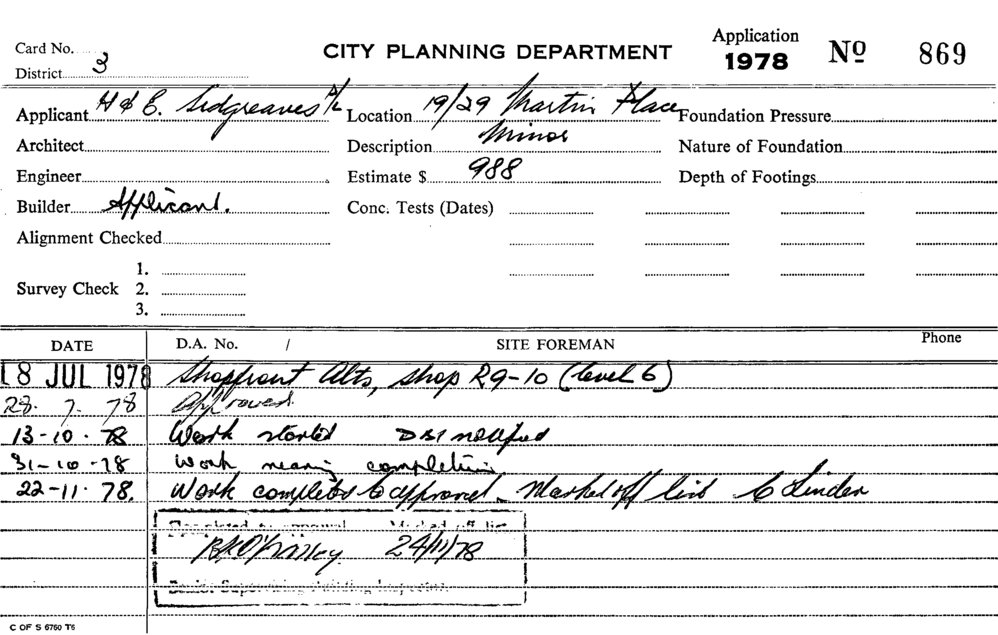 Card No.
CITY PLANNING DEPARTMENT
Application
1978 Nº 869
District 3
Applicant H & E. Sidgreaves P/L Location 19/29 Martin Place Foundation Pressure
Architect Description Minor Nature of Foundation
Engineer Estimate $ 988 Depth of Footings
Builder Applicant. Conc. Tests (Dates)
Alignment Checked
1.
Survey Check 2.
3.
DATE D.A. No. / SITE FOREMAN Phone
18 JUL 1978 Shopfront Alts, shop R9-10 (level 6)
28. 7. 78 Approved.
13-10-78 Work started DBI notified
31-10-78 Work nearing completion
22-11-78. Work completed to approval. Marked off list C Linden
Completed to approval Marked off list
24/11/78
Senior Supervising Building Inspector
C OF S 6760 T6